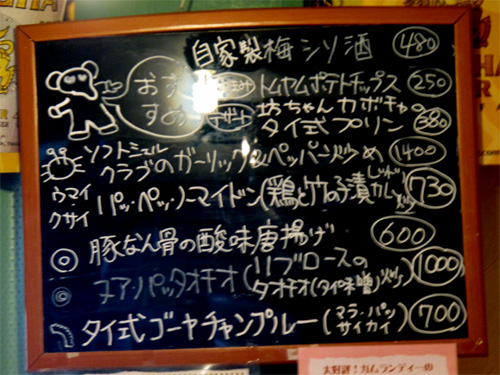 自家製梅シソ酒 480
おす
すめ
トムヤムポテトチップス 250
デザート 坊ちゃんカボチャの
タイ式プリン 380
ソフトシェル
クラブのガーリック&ペッパー炒め 1400
ウマイ
クサイ
パッ・ペッ・ノーマイドン(鶏と竹の子漬 730
豚なん骨の酸味唐揚げ 600
ヌア・パッタオチオ(リブロースの
タオチオ(タイ味噌)炒め) 1000
タイ式ゴーヤチャンプルー(マラ・パッ
サイカイ) 700
大好評!カムランティーの